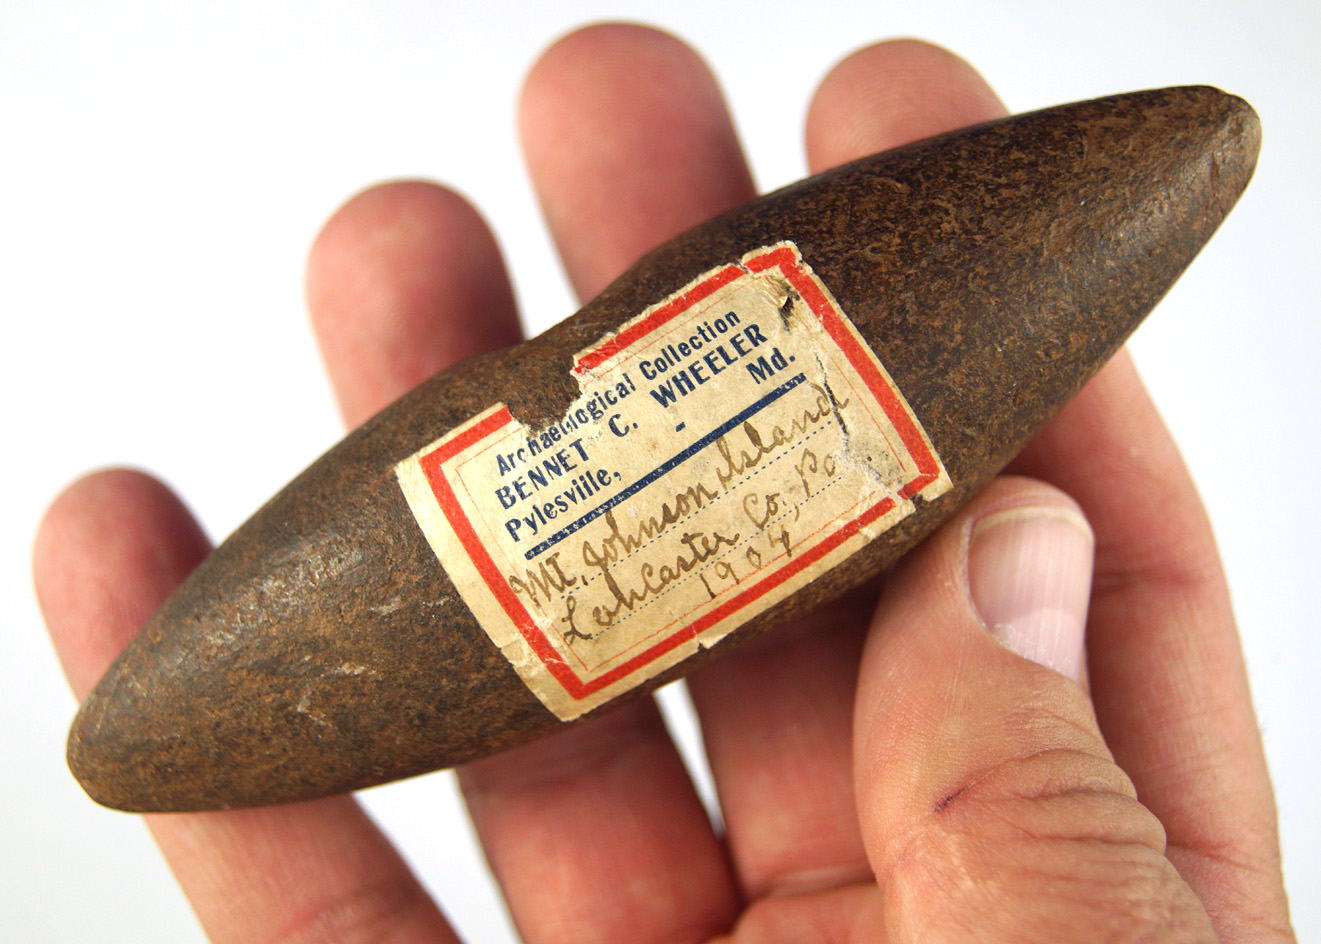 Archaeological Collection
BENNET C. WHEELER
Pylesville, - Md.
Mt. Johnson Island
Lancaster Co. Pa
1904